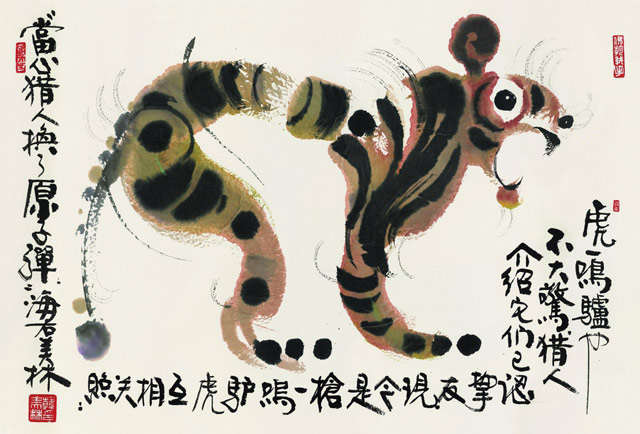 虎一鳴驢也
不大驚猎人
介绍它们已認
摯友現今是槍一鳴驴虎互相关照
當心猎人换了原子彈 海石美林